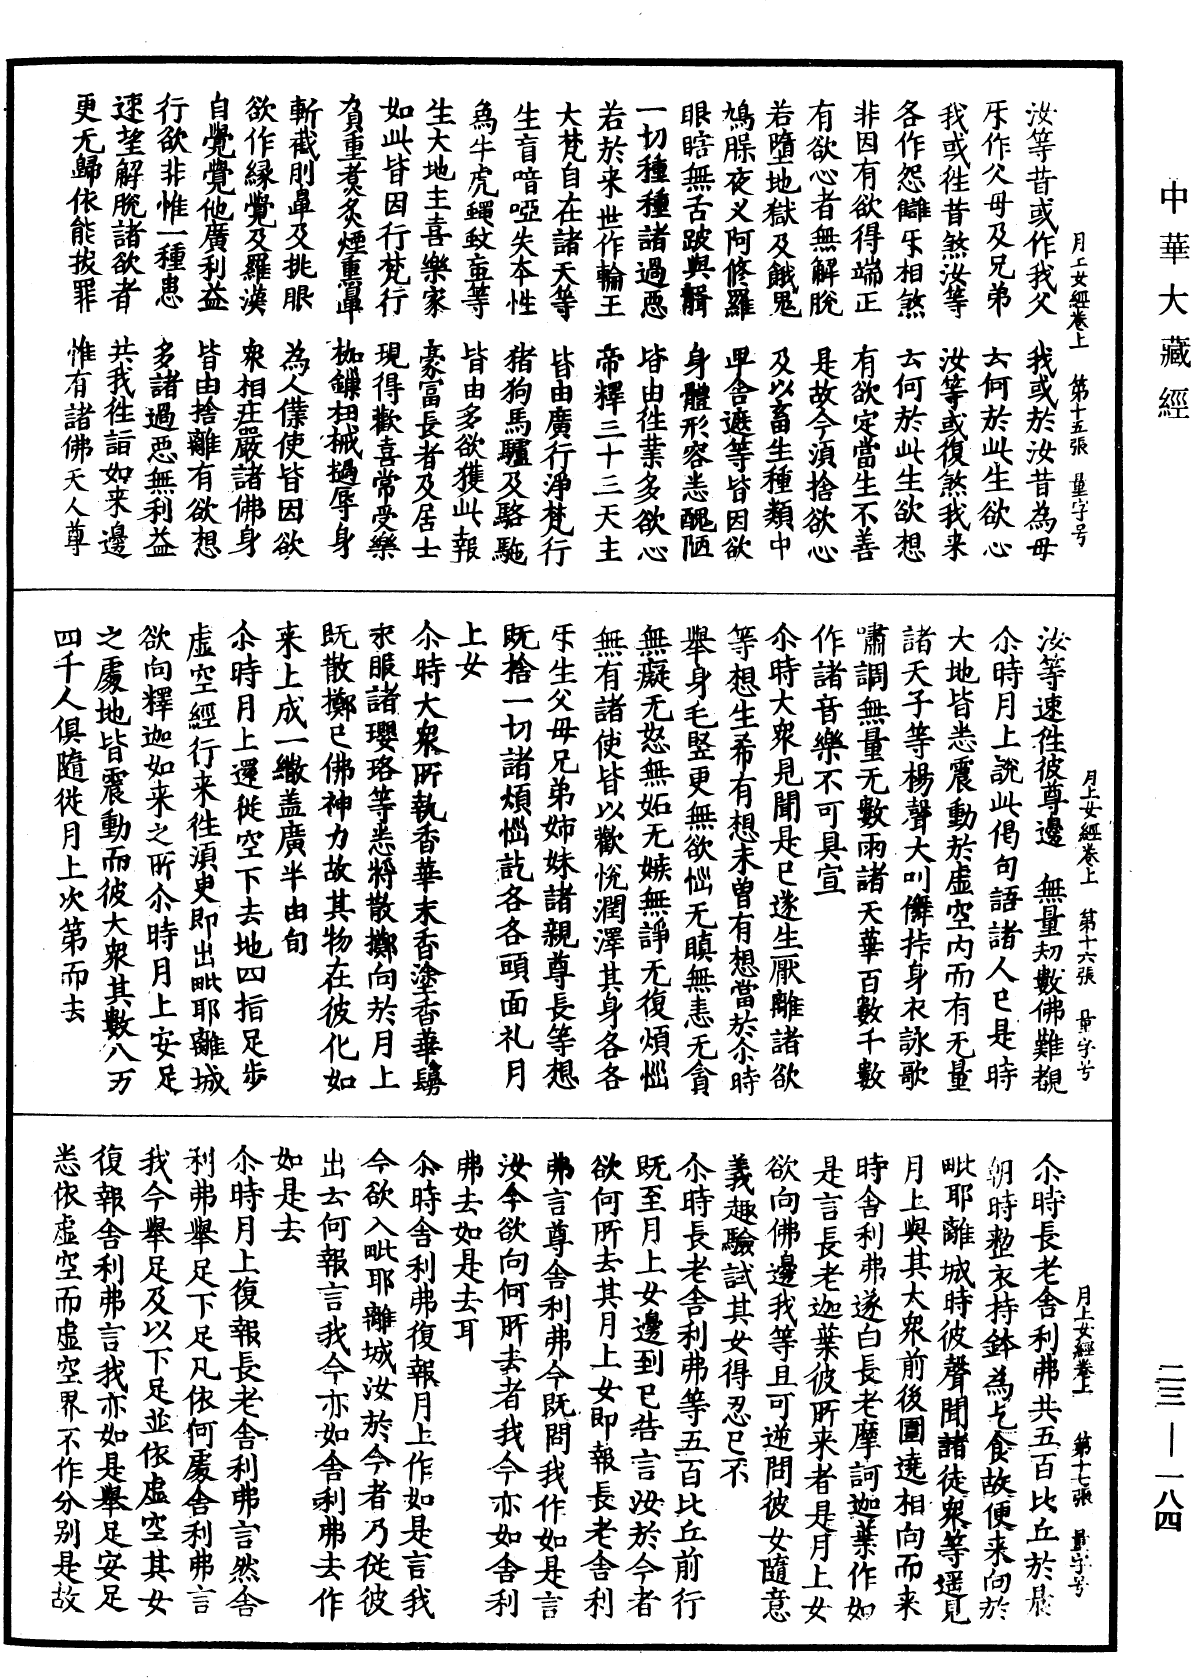 中華大藏經
二三—一八四
月上女經卷上　第十五張　量字号
汝等昔或作我父　我或於汝昔為母
乐作父母及兄弟　云何於此生欲心
我或往昔煞汝等　汝等或復煞我来
各作怨讎乐相煞　云何於此生欲想
非因有欲得端正　有欲定當生不善
有欲心者無解脫　是故今湏捨欲心
若墮地獄及餓鬼　及以畜生種類中
鳩䐿夜叉阿修羅　毗舍遮等皆因欲
眼瞎無舌跛與𤸷　身體形容悉醜陋
一切種種諸過惡　皆由往業多欲心
若於来世作輪王　帝釋三十三天主
大梵自在諸天等　皆由廣行淨梵行
生盲喑啞失本性　猪狗馬驢及駱駞
為牛虎蠅蚊䖟等　皆由多欲獲此報
生大地主喜樂家　豪富長者及居士
如此皆因行梵行　現得歡喜常受樂
負重煑炙煙熏鼻　枷鏁杻械撾辱身
斬截刖鼻及挑眼　為人僕使皆因欲
欲作緣覺及羅漢　衆相莊嚴諸佛身
自覺覺他廣利益　皆由捨離有欲想
行欲非惟一種患　多諸過惡無利益
速望解脫諸欲者　共我往詣如来邊
更无歸依能拔罪　惟有諸佛天人尊
月上女經卷上　第十六張　量字号
汝等速往彼尊邊　無量劫數佛難覩
尒時月上說此偈句語諸人已是時
大地皆悉震動於虛空内而有无量
諸天子等楊聲大叫儛㧊身衣詠歌
嘯調無量无數雨諸天華百數千數
作諸音樂不可具宣
尒時大衆見聞是已遂生厭離諸欲
等想生希有想未曾有想當於尒時
舉身毛竪更無欲惱无瞋無恚无貪
無癡无怒無妬无嫉無諍无復煩惱
無有諸使皆以歡悅潤澤其身各各
乐生父母兄弟姊妹諸親尊長等想
既捨一切諸煩惱訖各各頭面礼月
上女
尒時大衆所執香華末香塗香華鬘
衣服諸瓔珞等悉將散擲向於月上
既散擲已佛神力故其物在彼化如
来上成一繖盖廣半由旬
尒時月上還從空下去地四指足步
虛空經行来往湏臾即出毗耶離城
欲向釋迦如来之所尒時月上安足
之處地皆震動而彼大衆其數八万
四千人俱隨從月上次第而去
月上女經卷上　第十七張　量字号
尒時長老舍利弗共五百比丘於晨
朝時整衣持鉢為乞食故便来向於
毗耶離城時彼聲聞諸徒衆等遥見
月上與其大衆前後圍遶相向而来
時舍利弗遂白長老摩訶迦葉作如
是言長老迦葉彼所来者是月上女
欲向佛邊我等且可逆問彼女隨意
義趣驗試其女得忍已不
尒時長老舍利弗等五百比丘前行
既至月上女邊到已告言汝於今者
欲何所去其月上女即報長老舍利
弗言尊舍利弗今既問我作如是言
汝今欲向何所去者我今亦如舍利
弗去如是去耳
尒時舍利弗復報月上作如是言我
今欲入毗耶離城汝於今者乃從彼
出去何報言我今亦如舍利弗去作
如是去
尒時月上復報長老舍利弗言然舍
利弗舉足下足凡依何處舍利弗言
我今舉足及以下足並依虛空其女
復報舍利弗言我亦如是舉足安足
悉依虛空而虛空界不作分别是故